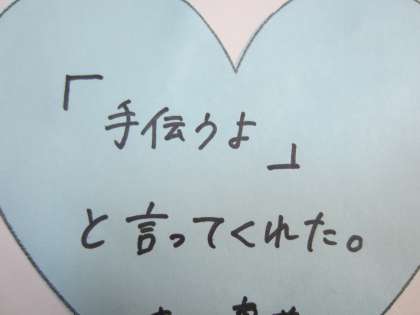 「手伝うよ」
と言ってくれた。